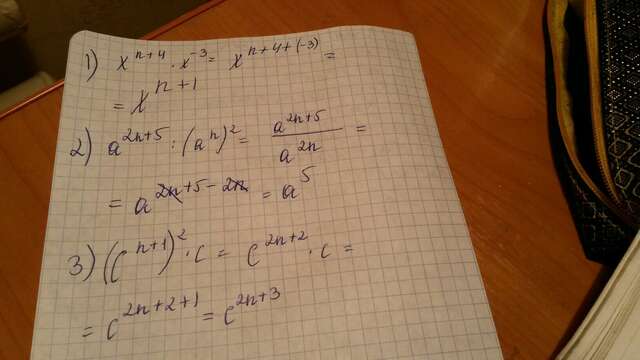 1) x^{n+4} · x^{-3} = x^{n+4+(-3)} =
= x^{n+1}
2) a^{2n+5} : (a^n)^2 = \frac{a^{2n+5}}{a^{2n}} =
= a^{2n+5-2n} = a^5
3) (c^{n+1})^2 · c = c^{2n+2} · c =
= c^{2n+2+1} = c^{2n+3}